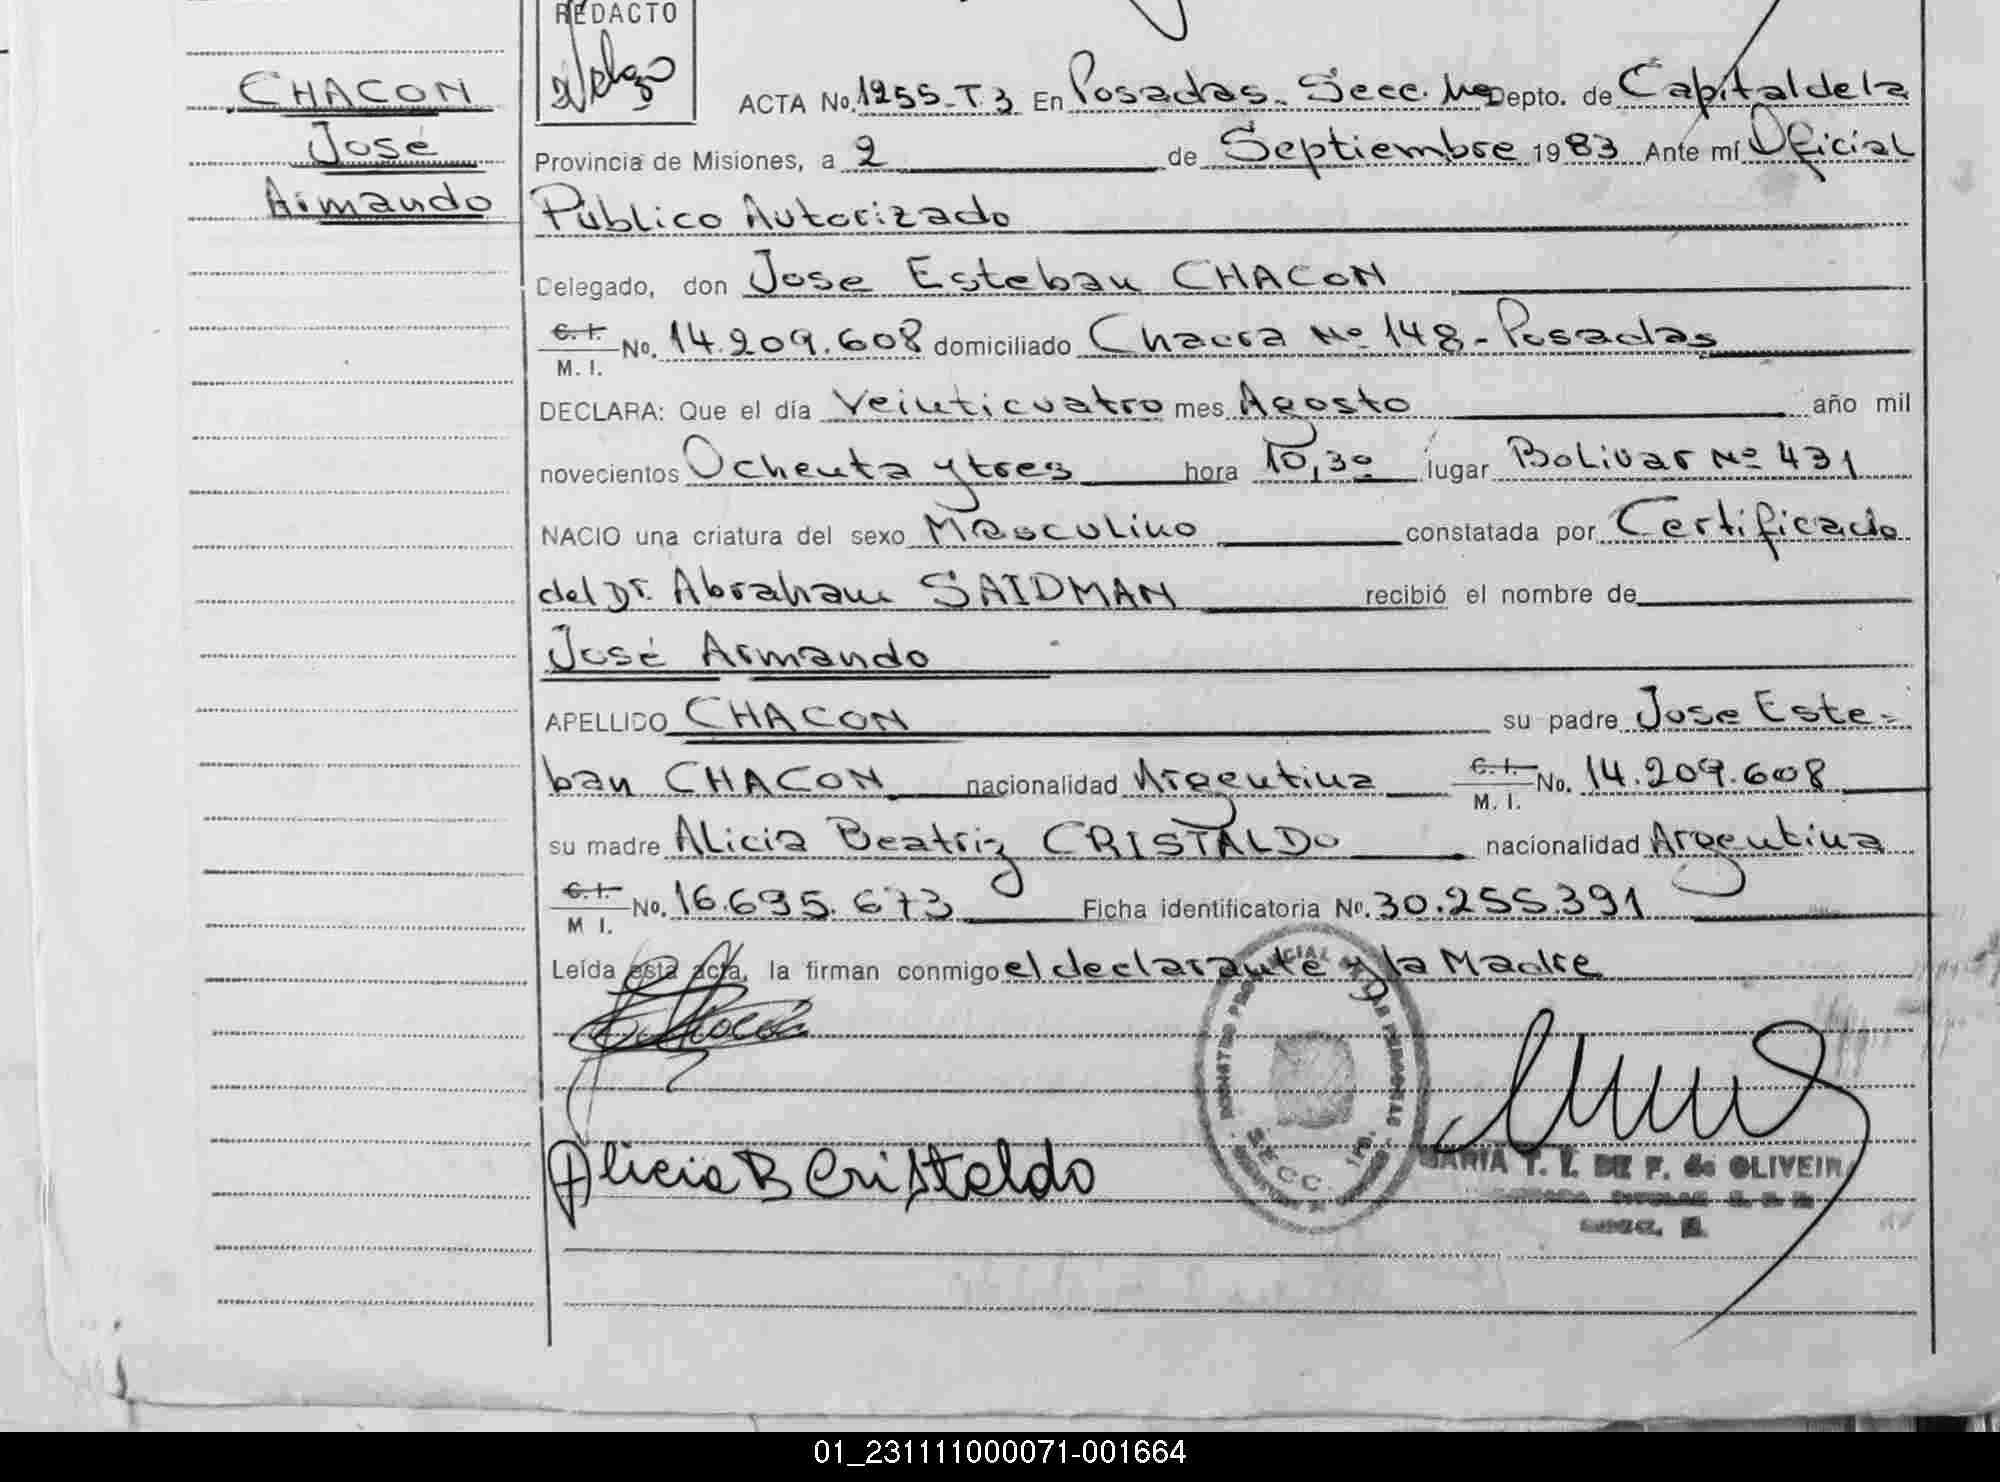 REDACTO
CHACON
José
Armando
ACTA No. 1255-T.3 En Posadas. Secc. Depto. de Capital de la
Provincia de Misiones, a 2 de Septiembre 1983 Ante mí Oficial
Público Autorizado
Delegado, don Jose Esteban CHACON
C. I. M. I. No. 14.209.608 domiciliado Chacra Nº 148-Posadas
DECLARA: Que el día Veinticuatro mes Agosto año mil
novecientos Ochenta y tres hora 10,30 lugar Bolivar Nº 431
NACIO una criatura del sexo Masculino constatada por Certificado
del Dr. Abraham SAIDMAN recibió el nombre de
José Armando
APELLIDO CHACON su padre Jose Este-
ban CHACON nacionalidad Argentina C. I. M. I. No. 14.209.608
su madre Alicia Beatriz CRISTALDO nacionalidad Argentina
C. I. M I. No. 16.695.673 Ficha identificatoria Nº. 30.255.391
Leída esta acta, la firman conmigo el declarante y la Madre
Alicia B Cristaldo
SECC. 1RA.
MARIA T. DE F. de OLIVEIRA
01_231111000071-001664